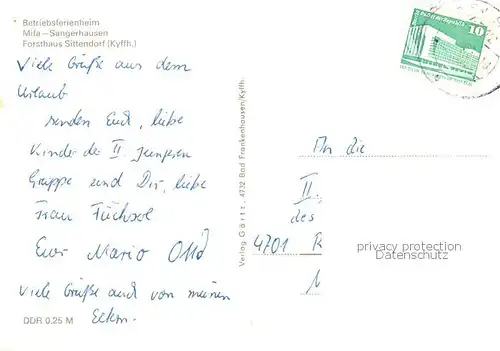 Betriebsferienheim
Mifa – Sangerhausen
Forsthaus Sittendorf (Kyffh.)
Viele Grüße aus dem
Urlaub
senden Euch, liebe
Kinder der II. jüngeren
Gruppe und Dir, liebe
Frau
Euer Mario Otto
Viele Grüße auch von meinen
Eltern.
DDR 0.25 M
Verlag Gärtz, 4732 Bad Frankenhausen/Kyffh.
10
An die
II.
des
4701 R
privacy protection
Datenschutz